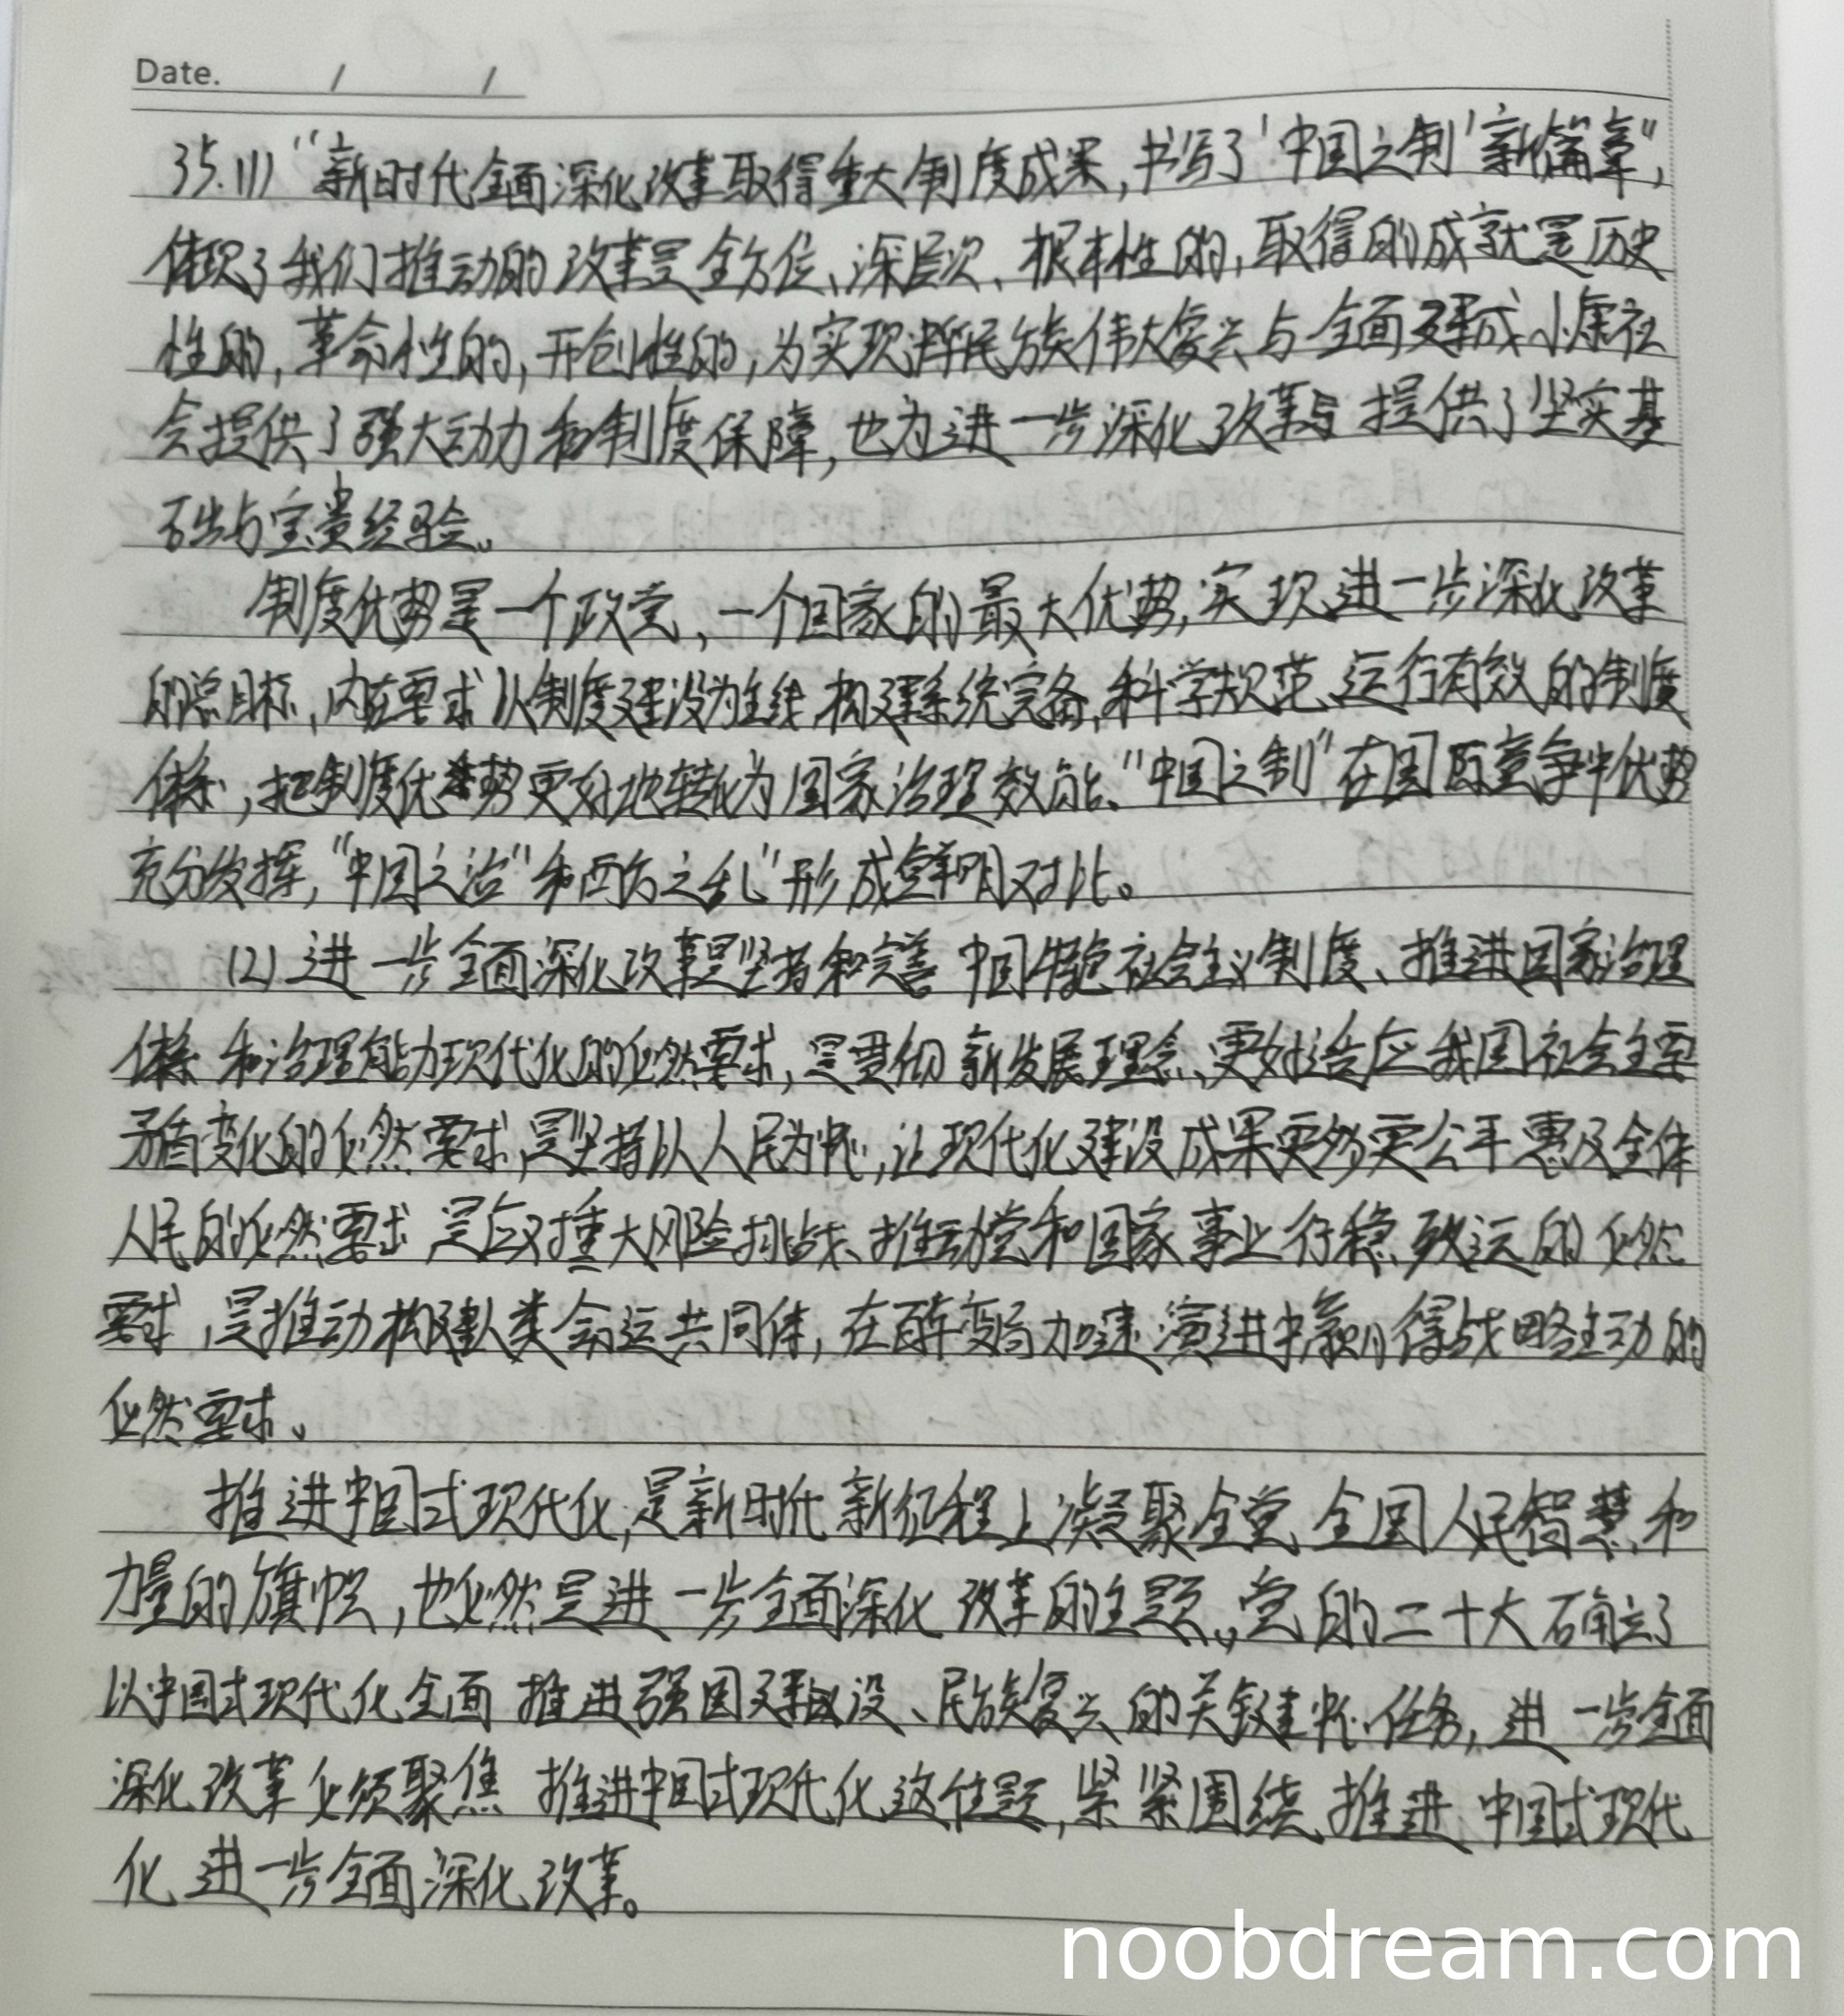 Date. / /
35.(1)“新时代全面深化改革取得重大制度成果,书写了‘中国之制’新篇章”,
体现了我们推动的改革是全方位、深层次、根本性的,取得的成就是历史
性的,革命性的,开创性的,为实现中华民族伟大复兴与全面建成小康社
会提供了强大动力和制度保障,也为进一步深化改革提供了坚实基
础与宝贵经验。
制度优势是一个政党、一个国家的最大优势,实现进一步深化改革
的总目标,内在要求以制度建设为主线,构建系统完备,科学规范、运行有效的制度
体系,把制度优势更好地转化为国家治理效能、“中国之制”在国际竞争中优势
充分发挥,“中国之治”和“西方之乱”形成鲜明对比。
(2)进一步全面深化改革是坚持和完善中国特色社会主义制度、推进国家治理
体系和治理能力现代化的必然要求,是贯彻新发展理念、更好适应我国社会主要
矛盾变化的必然要求,是坚持以人民为中心,让现代化建设成果更多更公平惠及全体
人民的必然要求,是应对重大风险挑战、推动党和国家事业行稳致远的必然
要求,是推动构建人类命运共同体,在百年变局加速演进中赢得战略主动的
必然要求。
推进中国式现代化,是新时代新征程上凝聚全党、全国人民智慧和
力量的旗帜,也必然是进一步全面深化改革的主题。党的二十大确立了
以中国式现代化全面推进强国建设、民族复兴的关键中心任务,进一步全面
深化改革必须聚焦推进中国式现代化这个主题,紧紧围绕推进中国式现代
化进一步全面深化改革。
noobdream.com